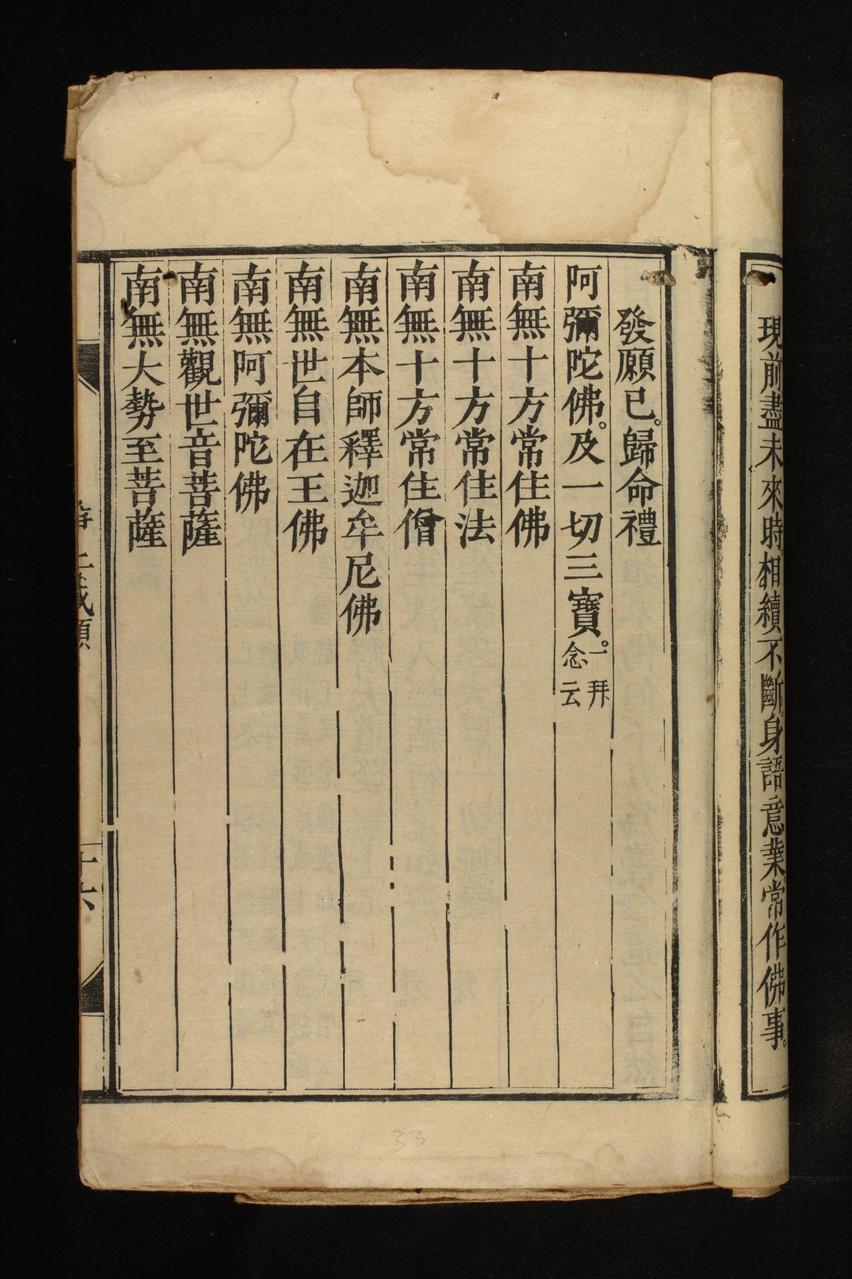 現前盡未來時相續不斷身語意業常作佛事。
發願已。歸命禮
阿彌陀佛。及一切三寶。一拜念云
南無十方常住佛
南無十方常住法
南無十方常住僧
南無本師釋迦牟尼佛
南無世自在王佛
南無阿彌陀佛
南無觀世音菩薩
南無大勢至菩薩
十六
33